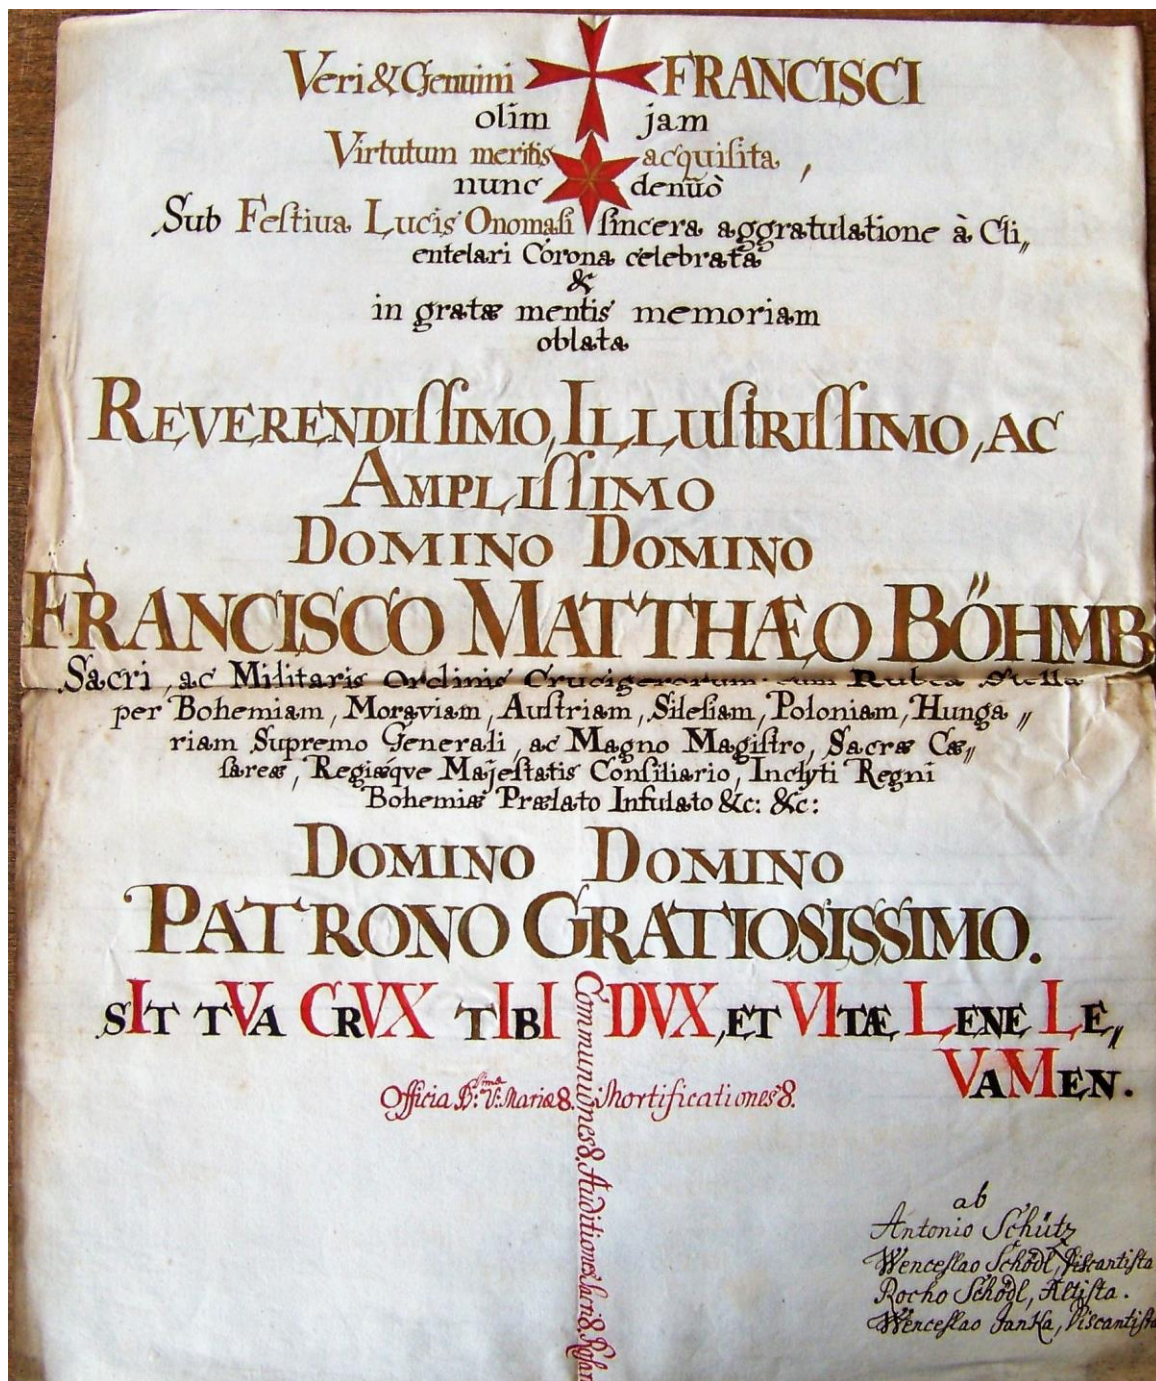 Veri & Genuini FRANCISCI
olim jam
Virtutum meritis acquisita,
nunc denuò
Sub Festiva Lucis Onomasi sincera aggratulatione à Cli„
entelari Corona celebrata
&
in gratæ mentis memoriam
oblata
REVERENDISSIMO, ILLUSTRISSIMO, AC
AMPLISSIMO
DOMINO DOMINO
FRANCISCO MATTHÆO BÖHMB
Sacri, ac Militaris Ordinis Crucigerorum cum Rubea Stella
per Bohemiam, Moraviam, Austriam, Silesiam, Poloniam, Hunga„
riam Supremo Generali, ac Magno Magistro, Sacræ Cæ„
sareæ, Regiæqve Majestatis Consiliario, Inclyti Regni
Bohemiæ Prælato Infulato &c: &c:
DOMINO DOMINO
PATRONO GRATIOSISSIMO.
SIT TVA CRVX TIBI DVX, ET VITÆ LENE LE„
VAMEN.
Officia B:simæ V: Mariæ 8. Mortificationes 8.
Communiones 8. Auditiones sacri 8. Rosar
ab
Antonio Schütz
Wenceslao Schödl, Discantista
Rocho Schödl, Altista.
Wenceslao Janka, Discantista